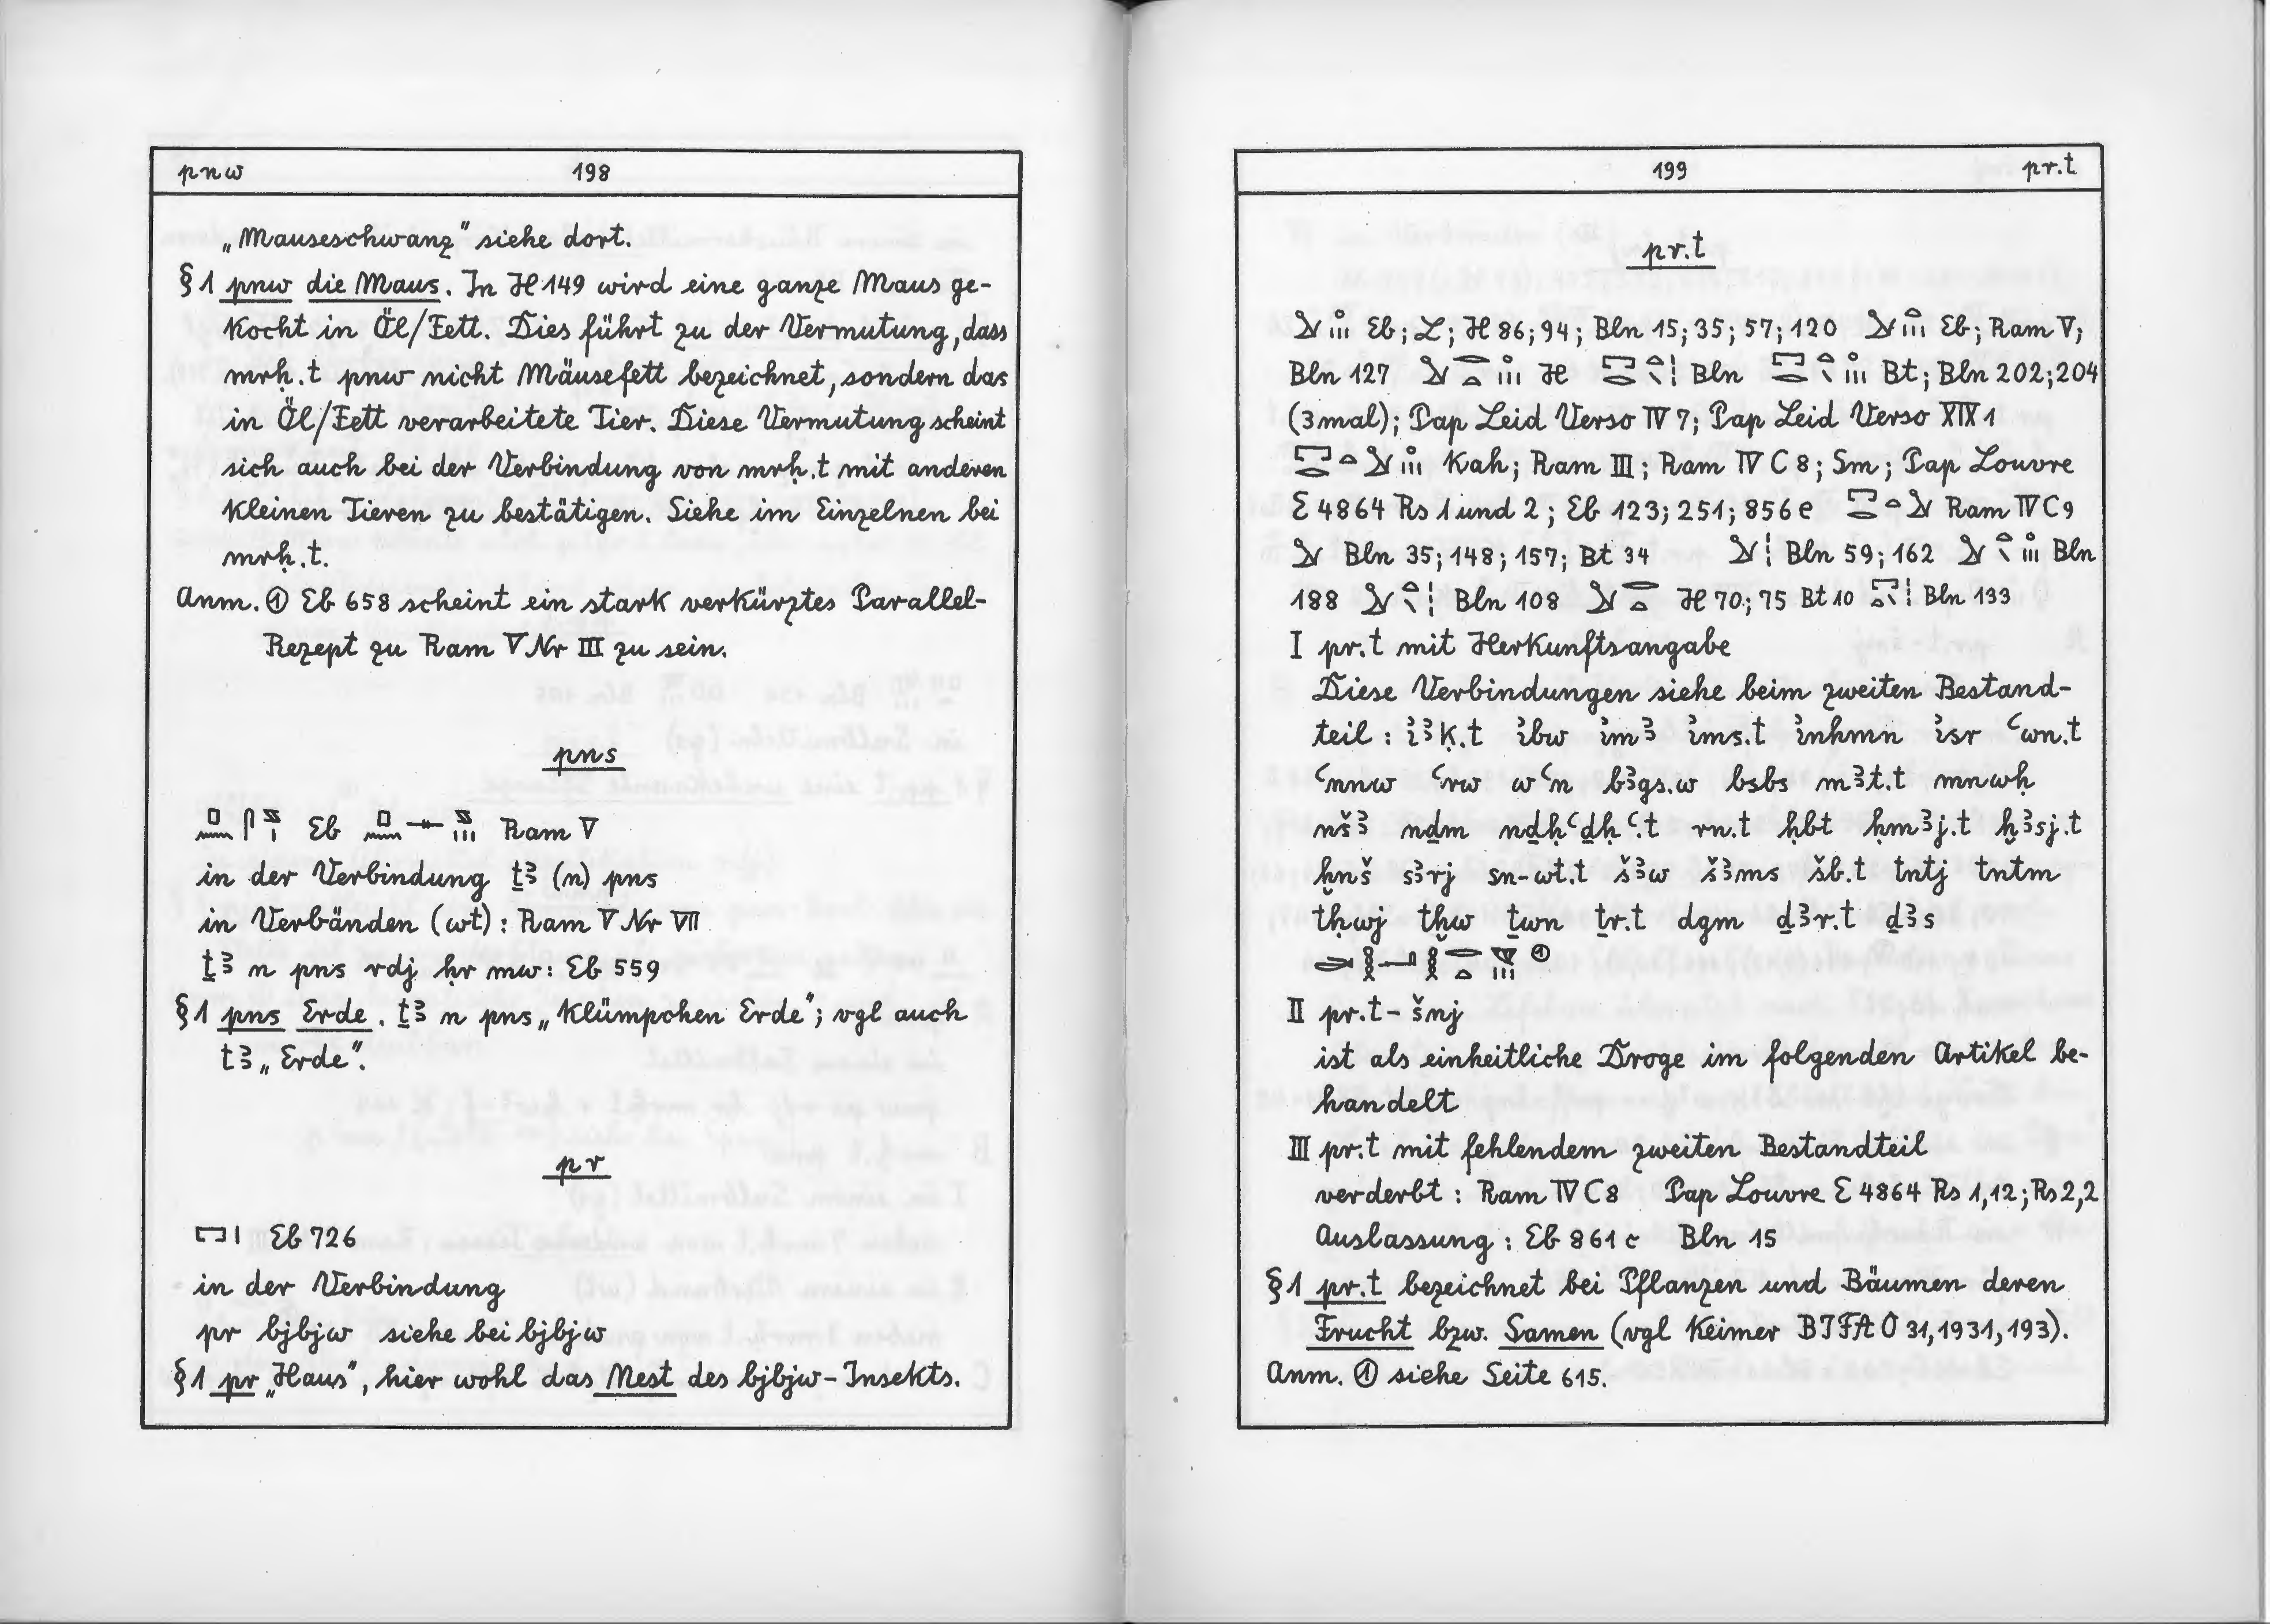 pnw 198
„Mauseschwanz" siehe dort.
§1 pnw die Maus. In H 149 wird eine ganze Maus ge-
kocht in Öl/Fett. Dies führt zu der Vermutung, dass
mrḥ.t pnw nicht Mäusefett bezeichnet, sondern das
in Öl/Fett verarbeitete Tier. Diese Vermutung scheint
sich auch bei der Verbindung von mrḥ.t mit anderen
kleinen Tieren zu bestätigen. Siehe im Einzelnen bei
mrḥ.t.
Anm. ① Eb 658 scheint ein stark verkürztes Parallel-
Rezept zu Ram V Nr III zu sein.
pns
Eb Ram V
in der Verbindung ṯꜣ (n) pns
in Verbänden (wt): Ram V Nr VII
ṯꜣ n pns rdj ḥr mw: Eb 559
§1 pns Erde. ṯꜣ n pns „Klümpchen Erde"; vgl auch
tꜣ „Erde".
pr
Eb 726
in der Verbindung
pr bjbjw siehe bei bjbjw
§1 pr „Haus", hier wohl das Nest des bjbjw-Insekts.
199 pr.t
pr.t
Eb; L; H 86; 94; Bln 15; 35; 57; 120 Eb; Ram V;
Bln 127 H Bln Bt; Bln 202; 204
(3mal); Pap Leid Verso IV 7; Pap Leid Verso XIX 1
Kah; Ram III; Ram IV C 8; Sm; Pap Louvre
E 4864 Rs 1 und 2; Eb 123; 251; 856 e Ram IV C 9
Bln 35; 148; 157; Bt 34 Bln 59; 162 Bln
188 Bln 108 H 70; 75 Bt 10 Bln 133
I pr.t mit Herkunftsangabe
Diese Verbindungen siehe beim zweiten Bestand-
teil: iꜣḳ.t ibw imꜣ ims.t inhmn isr ꜥwn.t
ꜥnnw ꜥrw wꜥn bꜣgs.w bsbs mꜣt.t mnwḥ
nšꜣ nḏm nḏḥꜥḏḥꜥ.t rn.t ḥbt ḥmꜣj.t ḫꜣsj.t
ḫnš sꜣrj sn-wt.t šꜣw šꜣms šb.t tntj tntm
tḥwj tḫw ṯwn ṯr.t dgm ḏꜣr.t ḏꜣs
①
II pr.t-šnj
ist als einheitliche Droge im folgenden Artikel be-
handelt
III pr.t mit fehlendem zweiten Bestandteil
verderbt: Ram IV C 8 Pap Louvre E 4864 Rs 1,12; Rs 2,2
Auslassung: Eb 861 c Bln 15
§1 pr.t bezeichnet bei Pflanzen und Bäumen deren
Frucht bzw. Samen (vgl Keimer BIFAO 31, 1931, 193).
Anm. ① siehe Seite 615.